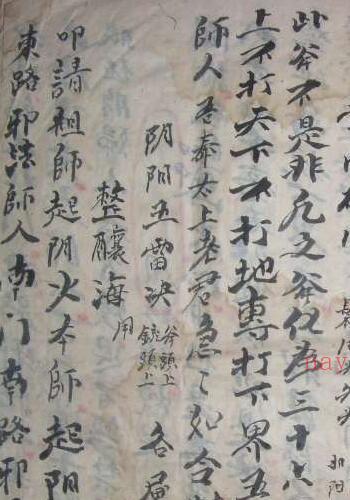 此斧不是非凡之斧化為三十六
上不打天下不打地專打下界五
師人吾奉太上老君急〻如令
阴阳五雷决 斧頭上 銃頭上 各属
整釀海用
叩請祖師起阴火本師起阴
東路邪法師人南门南路邪
nay